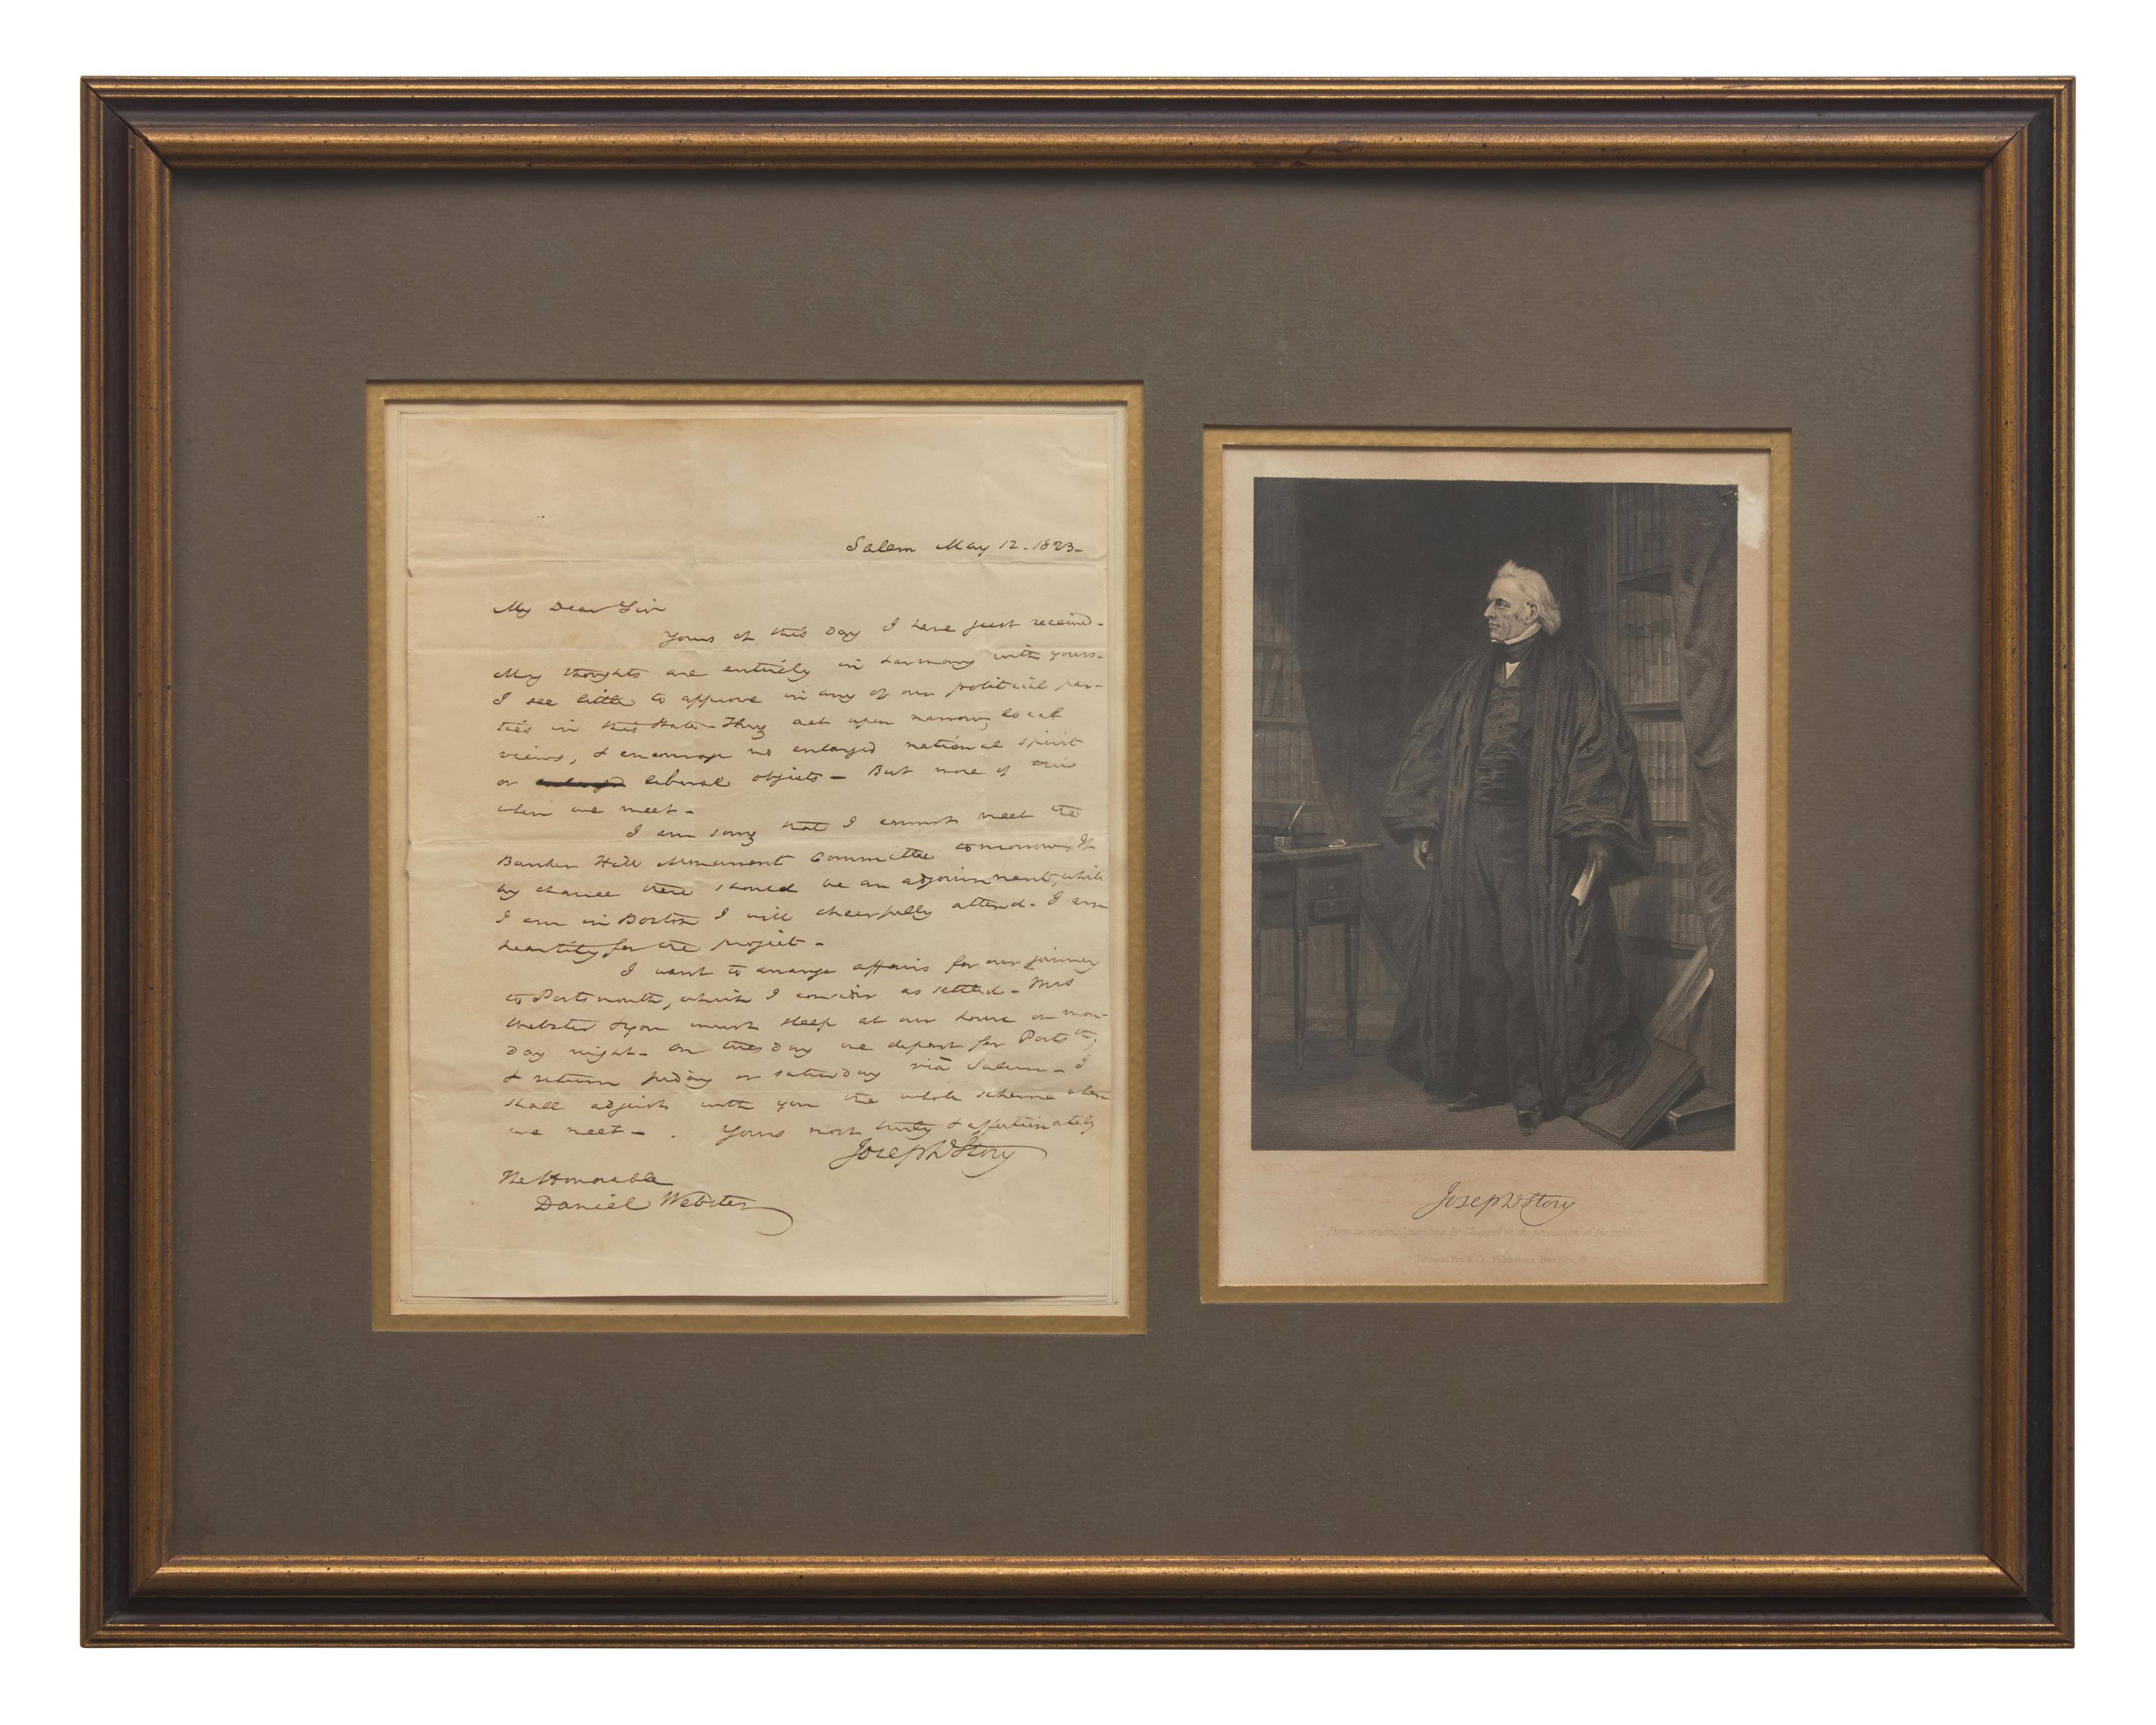 Salem May 12. 1823-
My Dear Sir
Yours of this Day I have just received-
My thoughts are entirely in harmony with yours-
I see little to approve in any of our political par-
ties in this State - They act upon narrow, local
views, & encourage no enlarged national spirit
or liberal objects - But more of this
when we meet -
I am sorry that I cannot meet the
Bunker Hill Monument Committee tomorrow. If
by chance there should be an adjournment, while
I am in Boston I will cheerfully attend. I am
heartily for the project -
I want to arrange affairs for our journey
to Portsmouth, which I consider as settled - Mrs
Webster & you must sleep at our house on mon-
day night - On tuesday we depart for Portsth,
& return friday or saturday via Salem - I
shall adjust with you the whole scheme when
we meet - . Yours most truly & affectionately
Joseph Story
The Honourable
Daniel Webster
Joseph Story
From an original painting by Chappel in the possession of the
Johnson, Fry & Co. Publishers, New York